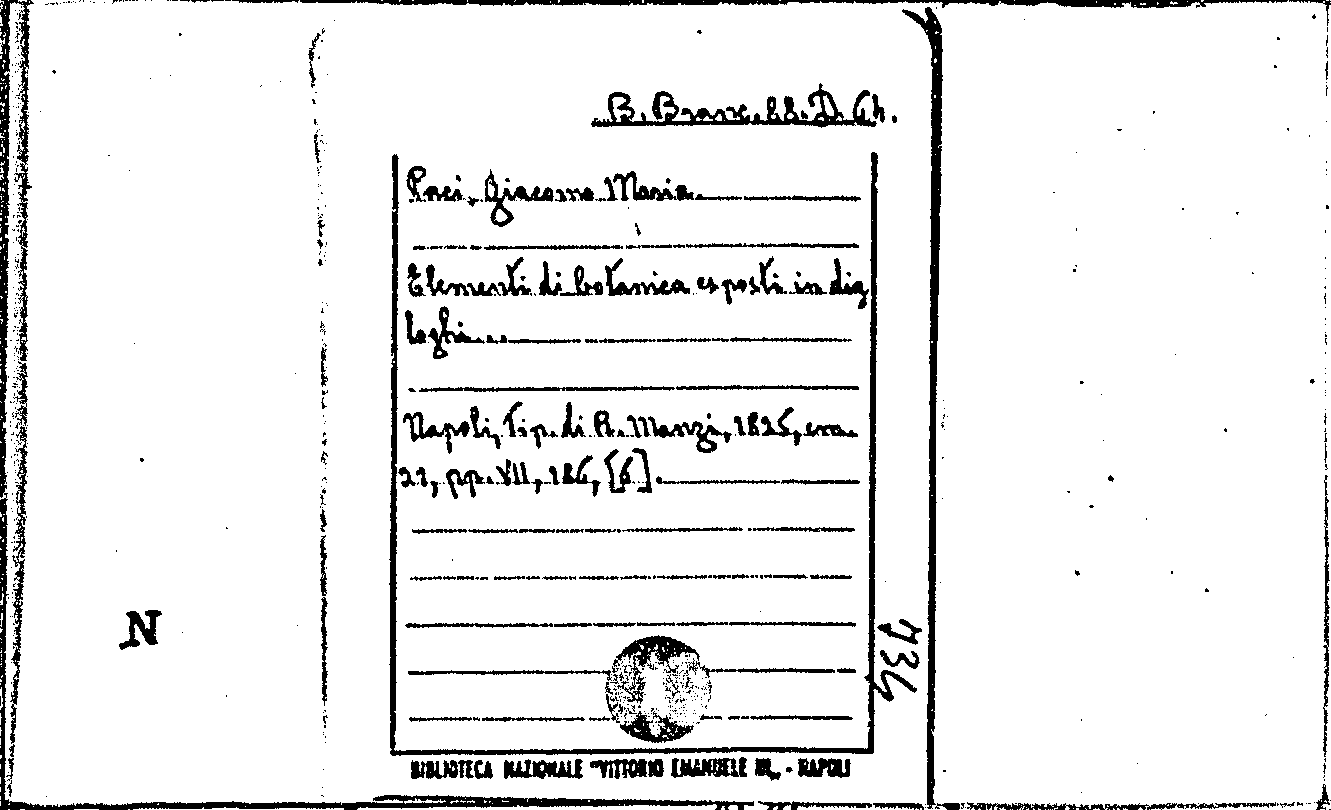 B. Branc. 88. D. 6h.
Paci, Giacomo Maria.
Elementi di botanica esposti in dia
loghi...
Napoli, Tip. di A. Manzi, 1825, cm.
21, pp. VII, 186, [6].
N
734
BIBLIOTECA NAZIONALE "VITTORIO EMANUELE III„ - NAPOLI